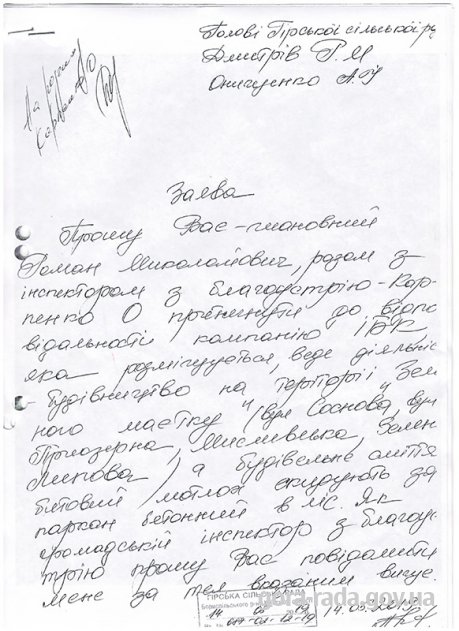 Голові Гірської сільської р
Дмитрів Р. М
Онищенко А.
На розгляд
Заява
Прошу Вас - шановний
Роман Миколайович, разом з
інспектором з благоустрію - Кар-
пенко О притягнути до відпо
відальності компанію
яка розміщується, веде діяльніс
- будівництво на території "Зем
ного маєтку" (вул Соснова, вул
Приозерна, Мисливська, Зелен
Липова) а будівельне сміття
битовий мотлох скидують за
паркан бетонний в ліс. Як
громадській інспектор з благоус
трію прошу Вас повідомити
мене за тел вказаним вище.
ГІРСЬКА СІЛЬСЬКА РАДА
14.05.2019
gora-rada.gov.ua